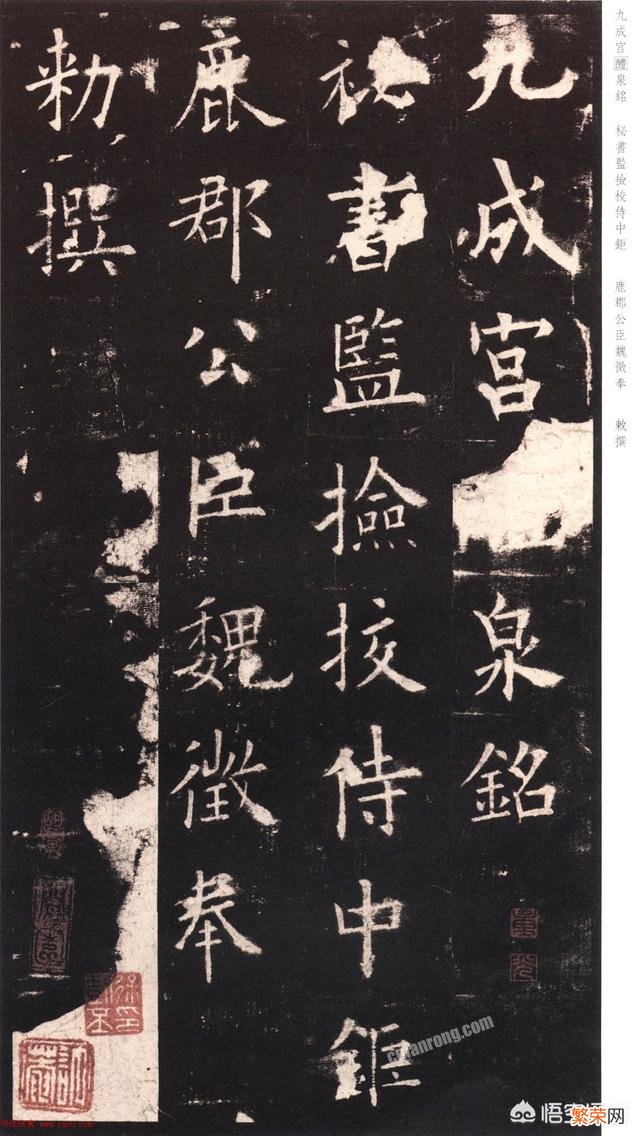 九成宮
泉銘
祕書監撿挍侍中鉅
鹿郡公臣魏徵奉
勑撰
九成宮醴泉銘 秘書監撿校侍中鉅 鹿郡公臣魏徵奉 敕撰
cnfanrong.com
悟空问答
繁荣网